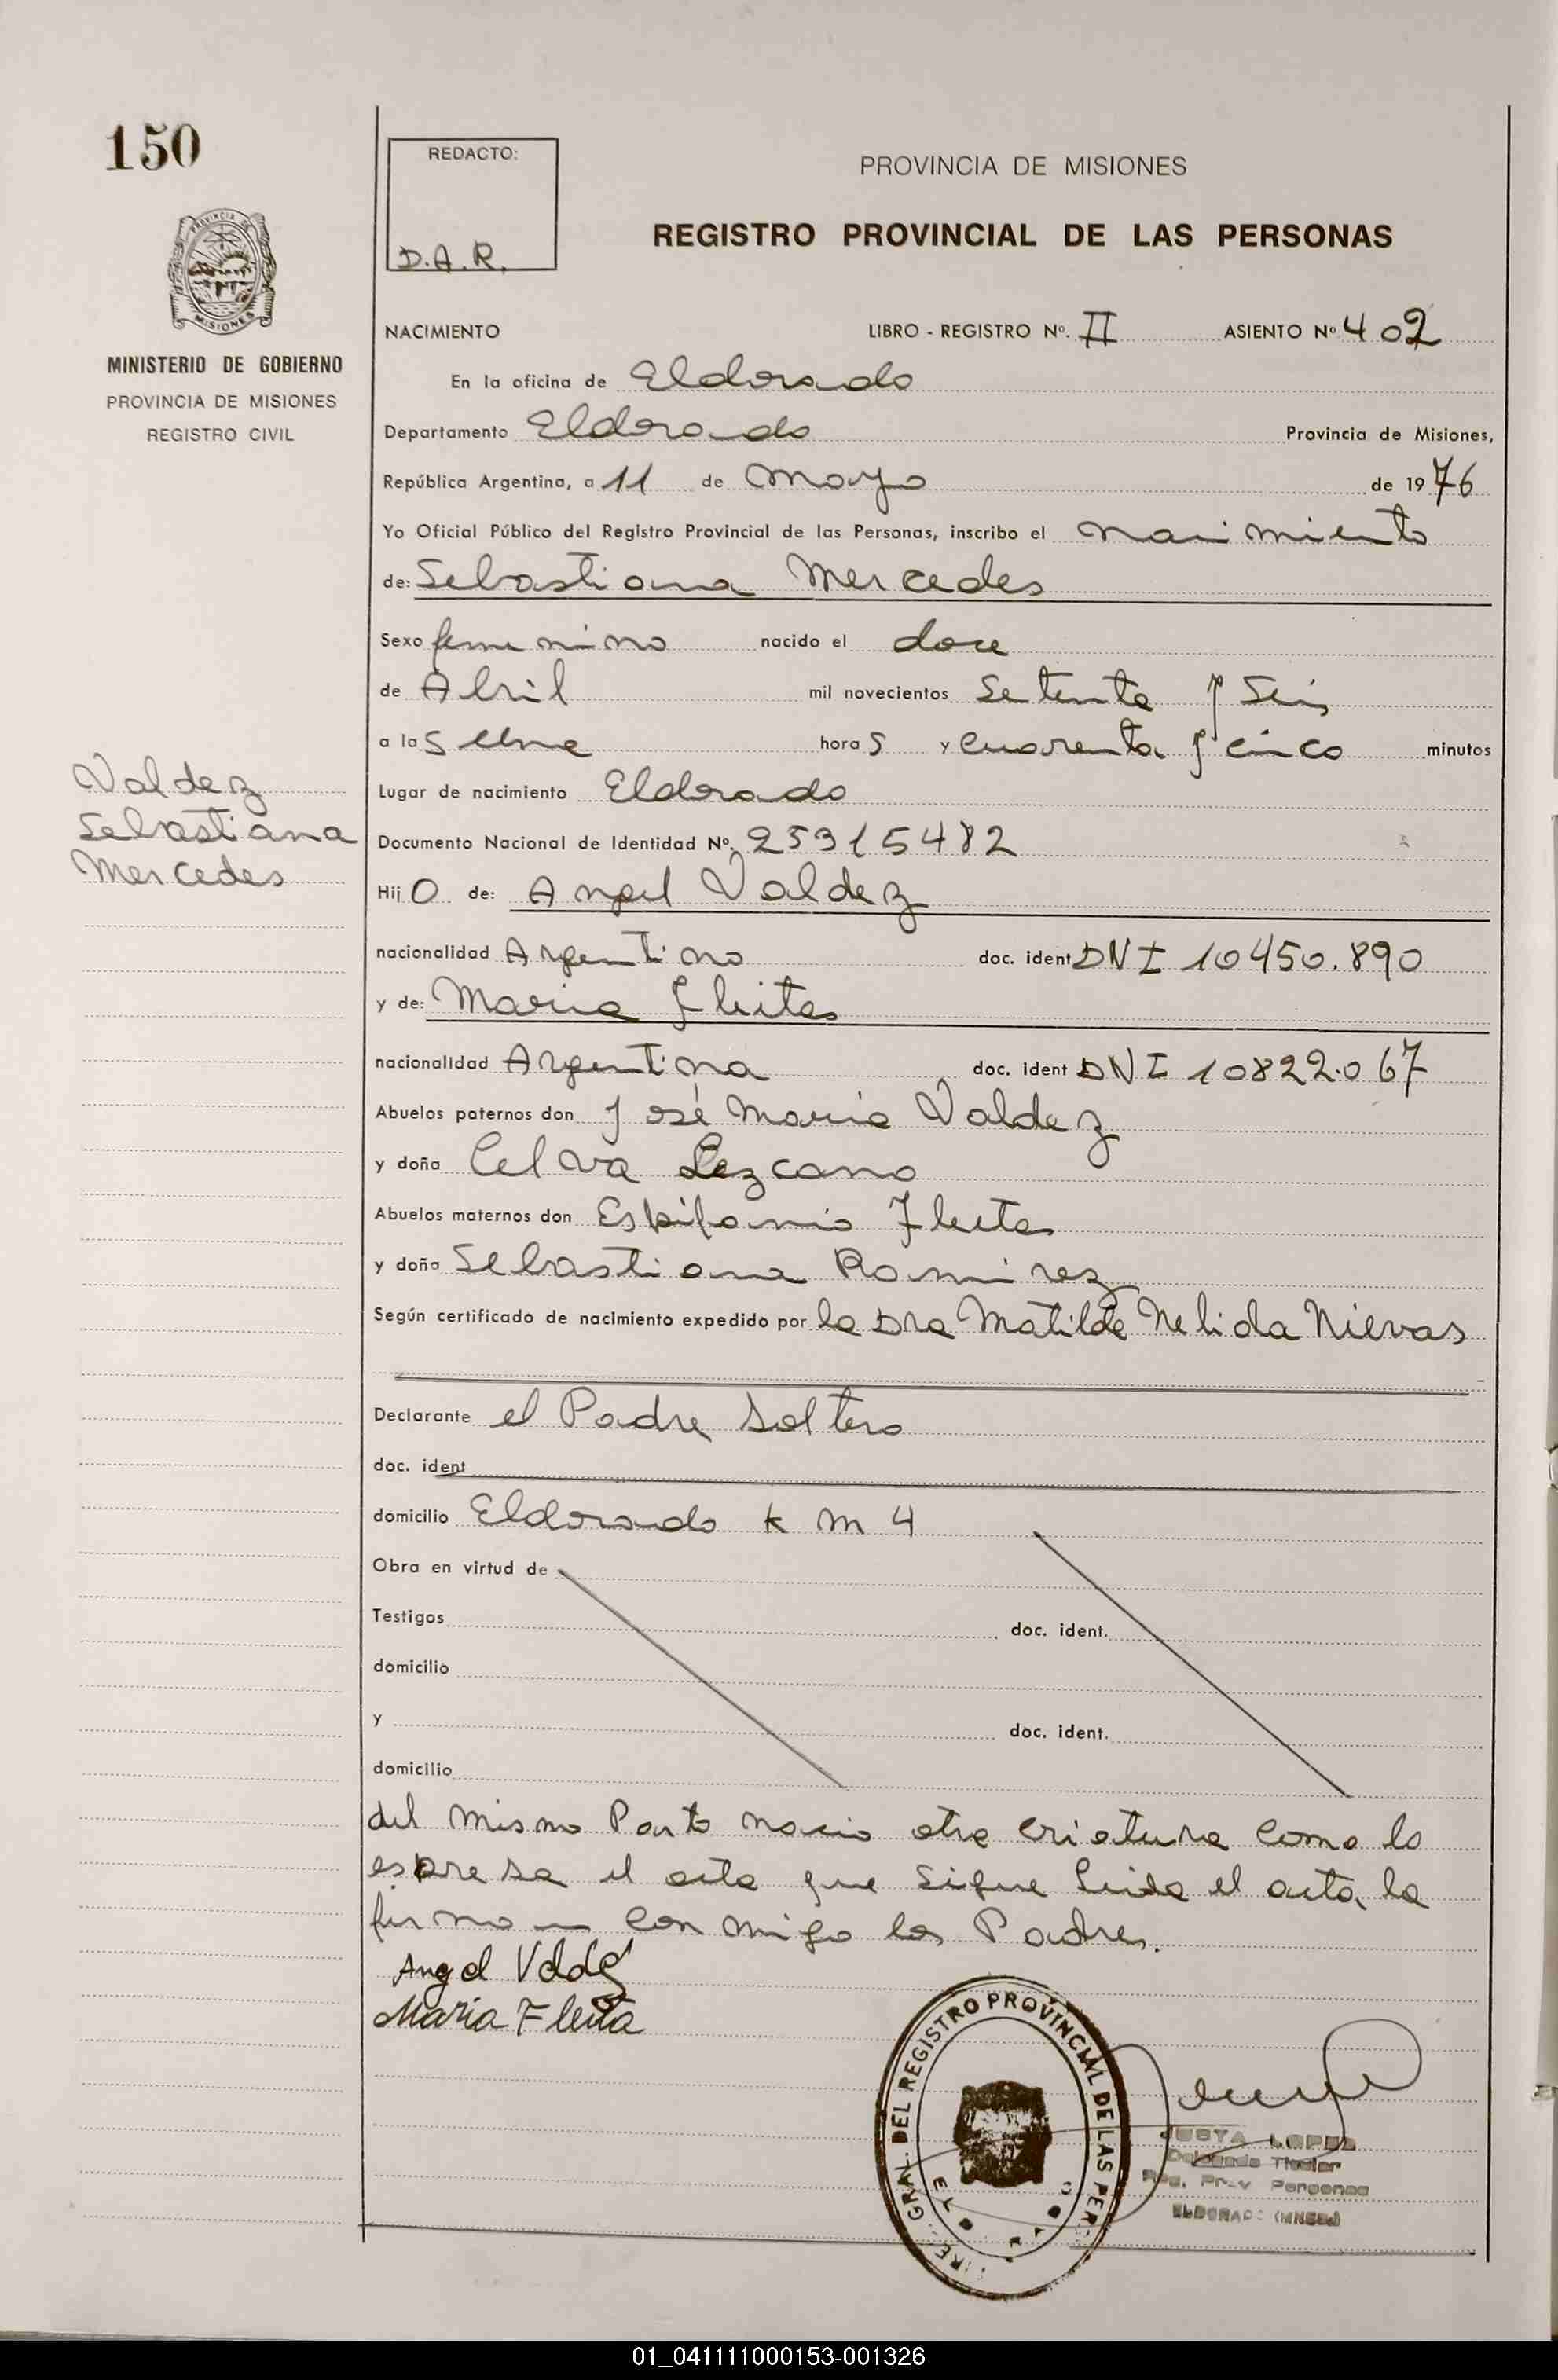 150
REDACTO:
D.A.R.
PROVINCIA DE MISIONES
REGISTRO PROVINCIAL DE LAS PERSONAS
PROVINCIA DE
MISIONES
MINISTERIO DE GOBIERNO
PROVINCIA DE MISIONES
REGISTRO CIVIL
NACIMIENTO LIBRO - REGISTRO Nº. II ASIENTO Nº 402
En la oficina de Eldorado
Departamento Eldorado Provincia de Misiones,
República Argentina, a 11 de mayo de 1976
Yo Oficial Público del Registro Provincial de las Personas, inscribo el nacimiento
de: Sebastiana Mercedes
Sexo femenino nacido el doce
de Abril mil novecientos Setenta y Seis
a las una horas y cuarenta y cinco minutos
Valdez
Sebastiana
Mercedes
Lugar de nacimiento Eldorado
Documento Nacional de Identidad Nº. 25315482
Hijo de: Angel Valdez
nacionalidad Argentino doc. ident DNI 10450.890
y de: Maria Fleitas
nacionalidad Argentina doc. ident DNI 10822.067
Abuelos paternos don José Maria Valdez
y doña Celva Lezcano
Abuelos maternos don Espifanio Fleitas
y doña Sebastiana Ramirez
Según certificado de nacimiento expedido por la Dra Matilde Nelida Nievas
Declarante el Padre Soltero
doc. ident
domicilio Eldorado km 4
Obra en virtud de
Testigos doc. ident.
domicilio
y doc. ident.
domicilio
del mismo Parto nacio otra criatura como lo
espresa el acta que sigue Leida el acta, la
firman con migo los Padres.
Angel Valdez
Maria Fleita
GRAL. DEL REGISTRO PROVINCIAL DE LAS PER
JUSTA LOPEZ
Delegada Titular
Reg. Prov Personas
ELDORADO (MNES.)
01_041111000153-001326